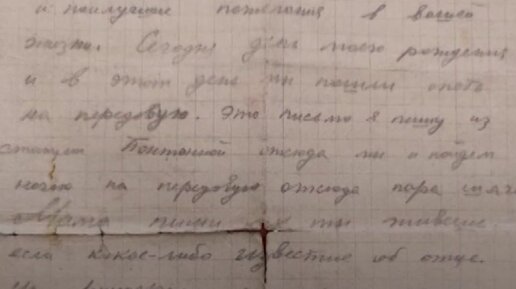 и наилучшие пожелания в вашей
жизни. Сегодня день моего рождения
и в этот день мы пошли опять
на передовую. Это письмо я пишу из
станции Понтонной отсюда мы и пойдем
ночью на передовую отсюда пара
Мама пиши
если какое-либо известие об отце.